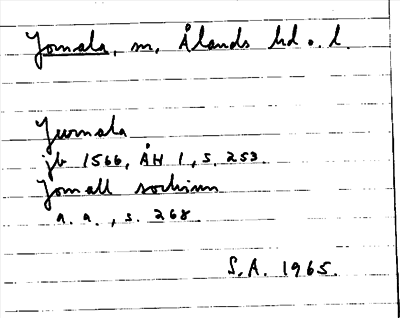 Jomala, sn, Ålands hd o. l.
Jwmala
jb 1566, ÅH 1, s. 253.
Jomall sochnn
a. a., s. 268.
S.A. 1965.